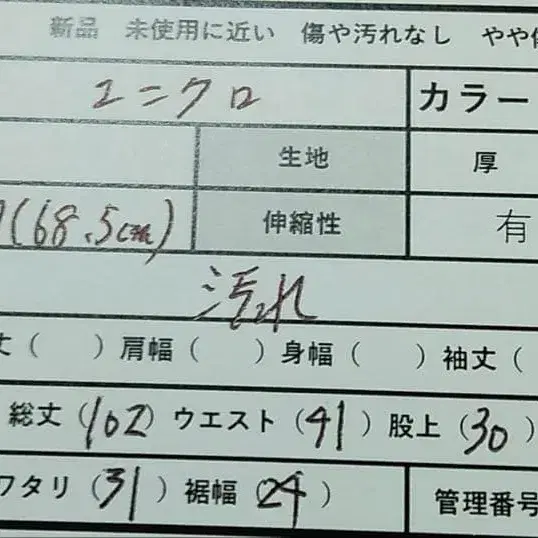 新品 未使用に近い 傷や汚れなし やや
ユニクロ カラー
生地 厚
(68.5cm) 伸縮性 有
汚れ
丈 ( ) 肩幅 ( ) 身幅 ( ) 袖丈 (
総丈 (102) ウエスト (41) 股上 (30)
ワタリ (31) 裾幅 (24) 管理番号